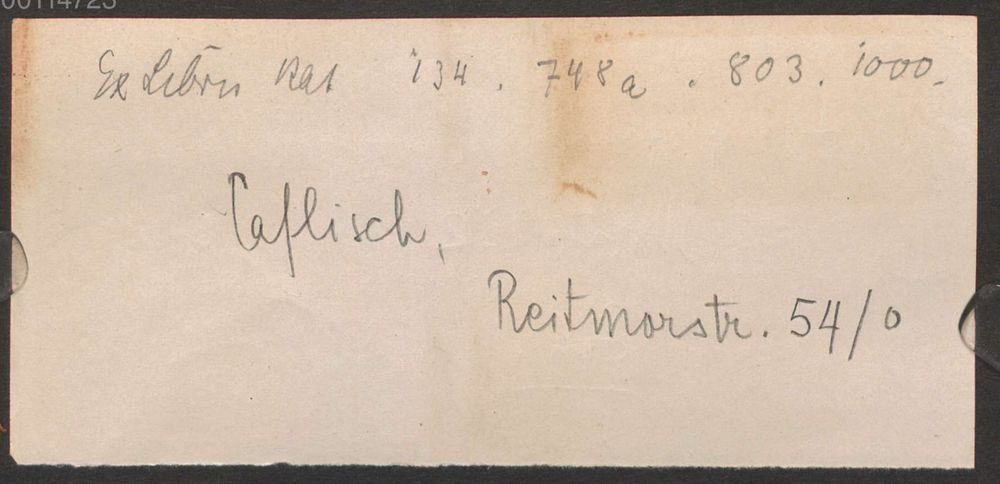 00114723
Ex Libris Kat 134. 748a. 803. 1000.
Caflisch,
Reitmorstr. 54/0